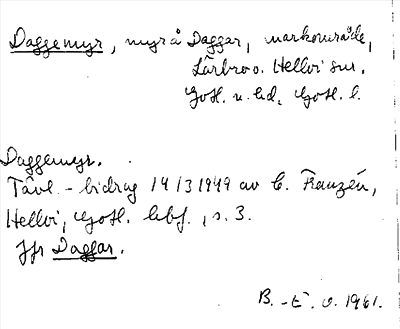 Daggemyr, myr å Daggar, markområde,
Lärbro o. Hellvi snr,
Gotl. n. hd, Gotl. l.
Daggemyr.
Tävl.-bidrag 14/3 1949 av C. Franzén,
Hellvi, Gotl. , s. 3.
Jfr Daggar.
B. -E. O. 1961.